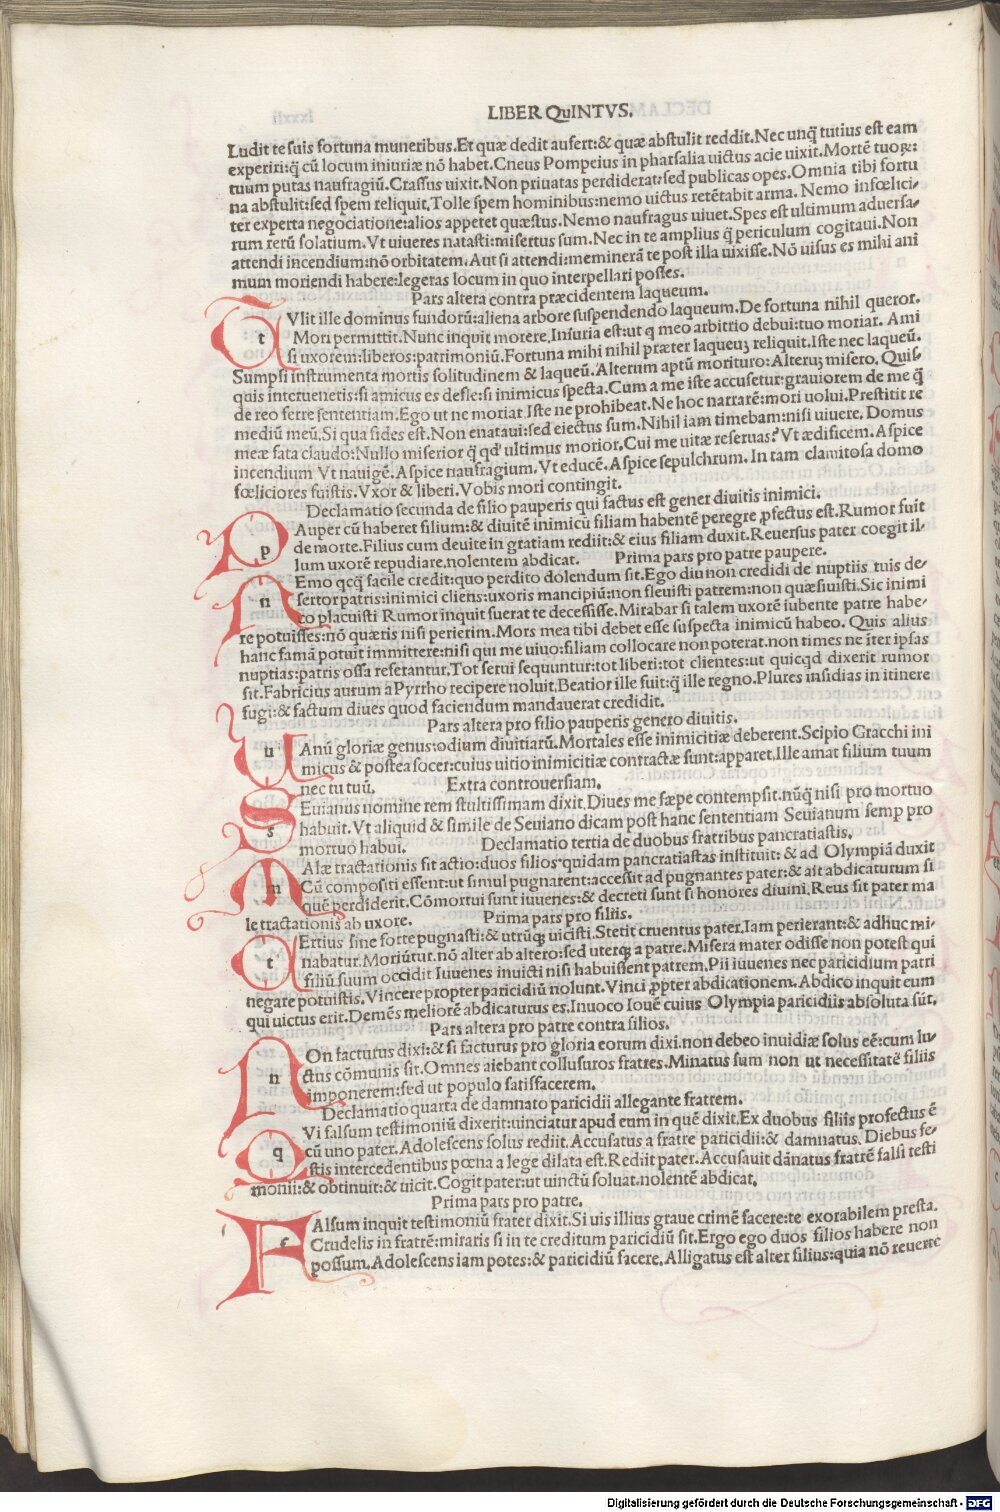 LIBER QuINTVS.
Ludit te suis fortuna muneribus.Et quæ dedit aufert:& quæ abstulit reddit.Nec unq̃ tutius est eam
experiri:q̃ cũ locum iniuriæ nõ habet.Cneus Pompeius in pharsalia uictus acie uixit.Mortẽ tuoꝝ:
tuum putas naufragiũ.Crassus uixit.Non priuatas perdiderat:sed publicas opes.Omnia tibi fortu
na abstulit:sed spem reliquit.Tolle spem hominibus:nemo uictus retẽtabit arma. Nemo infœlici-
ter experta negociatione:alios appetet quæstus.Nemo naufragus uiuet.Spes est ultimum aduersa-
rum rerũ solatium.Vt uiueres natasti:misertus sum.Nec in te amplius q̃ periculum cogitaui.Non
attendi incendium:nõ orbitatem.Aut si attendi:meminerã te post illa uixisse.Nõ uisus es mihi ani
mum moriendi habere:legeras locum in quo interpellari posses.
Pars altera contra præcidentem laqueum.
t Vlit ille dominus fundorũ:aliena arbore suspendendo laqueum.De fortuna nihil queror.
Mori permittit.Nunc inquit morere.Iniuria est:ut q meo arbitrio debui:tuo moriar. Ami
si uxorem:liberos:patrimoniũ.Fortuna mihi nihil præter laqueuꝫ reliquit.Iste nec laqueũ.
Sumpsi instrumenta mortis solitudinem & laqueũ.Alterum aptũ morituro:Alteruꝫ misero. Quis-
quis interueneris:si amicus es defle:si inimicus specta.Cum a me iste accusetur:grauiorem de me q̃
de reo ferre sententiam.Ego ut ne moriar.Iste ne prohibeat.Ne hoc narrarẽ:mori uolui.Prestitit re
mediũ meũ.Si qua fides est.Non enataui:sed eiectus sum.Nihil iam timebam:nisi uiuere. Domus
meæ fata claudo:Nullo miserior q̃ qd' ultimus morior.Cui me uitæ reseruas? Vt ædificem.Aspice
incendium Vt nauigẽ.Aspice naufragium.Vt educẽ.Aspice sepulchrum. In tam clamitosa domo
fœliciores fuistis.Vxor & liberi.Vobis mori contingit.
Declamatio secunda de filio pauperis qui factus est gener diuitis inimici.
p Auper cũ haberet filium:& diuitẽ inimicũ filiam habentẽ peregre ꝓfectus est.Rumor fuit
de morte.Filius cum deuite in gratiam rediit:& eius filiam duxit.Reuersus pater coegit il-
lum uxorẽ repudiare.nolentem abdicat. Prima pars pro patre paupere.
n Emo qcq̃ facile credit:quo perdito dolendum sit.Ego diu non credidi de nuptiis tuis de-
sertor patris:inimici cliens:uxoris mancipiũ:non fleuisti patrem:non quæsiuisti.Sic inimi
co placuisti Rumor inquit fuerat te decessisse.Mirabar si talem uxorẽ iubente patre habe-
re potuisses:nõ quæris nisi perierim.Mors mea tibi debet esse suspecta inimicũ habeo. Quis alius
hanc famã potuit immittere:nisi qui me uiuo:filiam collocare non poterat.non times ne īter ipsas
nuptias:patris ossa referantur.Tot serui sequuntur:tot liberi:tot clientes:ut quicqd dixerit rumor
sit.Fabricius aurum a Pyrrho recipere noluit.Beatior ille fuit:q̃ ille regno.Plures insidias in itinere
fugi:& factum diues quod faciendum mandauerat credidit.
Pars altera pro filio pauperis genero diuitis.
u Anũ gloriæ genus:odium diuitiarũ.Mortales esse inimicitiæ deberent.Scipio Gracchi ini
micus & postea socer:cuius uitio inimicitiæ contractæ sunt:apparet.Ille amat filium tuum
nec tu tuũ. Extra controuersiam.
s Euianus nomine rem stultissimam dixit.Diues me sæpe contempsit.nũq̃ nisi pro mortuo
habuit.Vt aliquid & simile de Seuiano dicam post hanc sententiam Seuianum semp pro
mortuo habui. Declamatio tertia de duobus fratribus pancratiastis.
m Alæ tractationis sit actio:duos filios quidam pancratiastas instituit: & ad Olympiã duxit
Cũ compositi essent:ut simul pugnarent:accessit ad pugnantes pater:& ait abdicaturum si
quẽ perdiderit.Cõmortui sunt iuuenes:& decreti sunt si honores diuini.Reus sit pater ma
le tractationis ab uxore. Prima pars pro filiis.
t Ertius sine sorte pugnasti:& utrũqꝫ uicisti.Stetit cruentus pater.Iam perierant:& adhuc mi-
nabatur.Moriũtur.nõ alter ab altero:sed uterqꝫ a patre.Misera mater odisse non potest qui
filiũ suum occidit Iuuenes inuicti nisi habuissent patrem.Pii iuuenes nec paricidium patri
negare potuistis.Vincere propter paricidiũ nolunt.Vinci ꝓpter abdicationem.Abdico inquit eum
qui uictus erit.Demẽs meliorẽ abdicaturus es.Inuoco Iouẽ cuius Olympia paricidiis absoluta sũt.
Pars altera pro patre contra filios.
n On facturus dixi:& si facturus pro gloria eorum dixi.non debeo inuidiæ solus eẽ:cum lu-
ctus cõmunis sit.Omnes aiebant collusuros fratres.Minatus sum non ut necessitatẽ filiis
imponerem:sed ut populo satisfacerem.
Declamatio quarta de damnato paricidii allegante fratrem.
q Vi falsum testimoniũ dixerit:uinciatur apud eum in quẽ dixit.Ex duobus filiis profectus ẽ
cũ uno pater.Adolescens solus rediit.Accusatus a fratre paricidii:& damnatus. Diebus fe-
stis intercedentibus pœna a lege dilata est.Rediit pater.Accusauit dãnatus fratrẽ falsi testi
monii:& obtinuit:& uicit.Cogit pater:ut uinctũ soluat.nolentẽ abdicat.
Prima pars pro patre.
f Alsum inquit testimoniũ frater dixit.Si uis illius graue crimẽ facere:te exorabilem presta.
Crudelis in fratrẽ:miraris si in te creditum paricidiũ sit.Ergo ego duos filios habere non
possum.Adolescens iam potes:& paricidiũ facere.Alligatus est alter filius:quia nõ reuerte
Digitalisierung gefördert durch die Deutsche Forschungsgemeinschaft - DFG